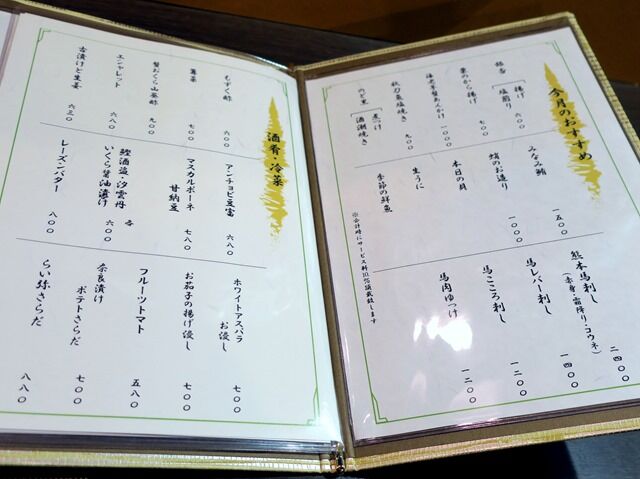 今月のおすすめ
銀杏
揚げ
塩煎り
六〇〇
栗のから揚げ
七〇〇
海老芋蟹あんかけ
一〇〇〇
秋刀魚塩焼き
九〇〇
のど黒
煮つけ
酒潮焼き
みなみ鮪
一五〇〇
鯖のお造り
一〇〇〇
本日の貝
生うに
季節の鮮魚
※会計時にサービス料10%頂戴致します
熊本馬刺し
(赤身・霜降り・コウネ)
二四〇〇
馬レバー刺し
一四〇〇
馬こころ刺し
一二〇〇
馬肉ゆっけ
一二〇〇
酒肴・冷菜
もずく酢
六〇〇
蓴菜
七〇〇
蟹おくら山葵酢
九〇〇
エシャレット
六八〇
古漬けと生姜
六三〇
アンチョビ豆富
六八〇
マスカルポーネ
甘納豆
七八〇
鰹酒盗・汐雲丹
いくら醤油漬け
各
六〇〇
レーズンバター
八〇〇
ホワイトアスパラ
お浸し
七〇〇
お茄子の揚げ浸し
七〇〇
フルーツトマト
五八〇
奈良漬け
ポテトさらだ
七〇〇
らい弥さらだ
八八〇